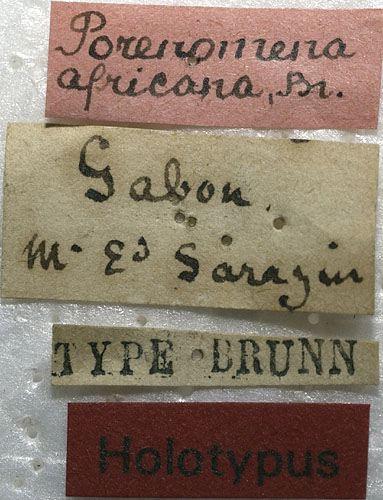 Porenomena
africana, Br.
Gabon.
Mr Ed Sarazin
TYPE BRUNN
Holotypus